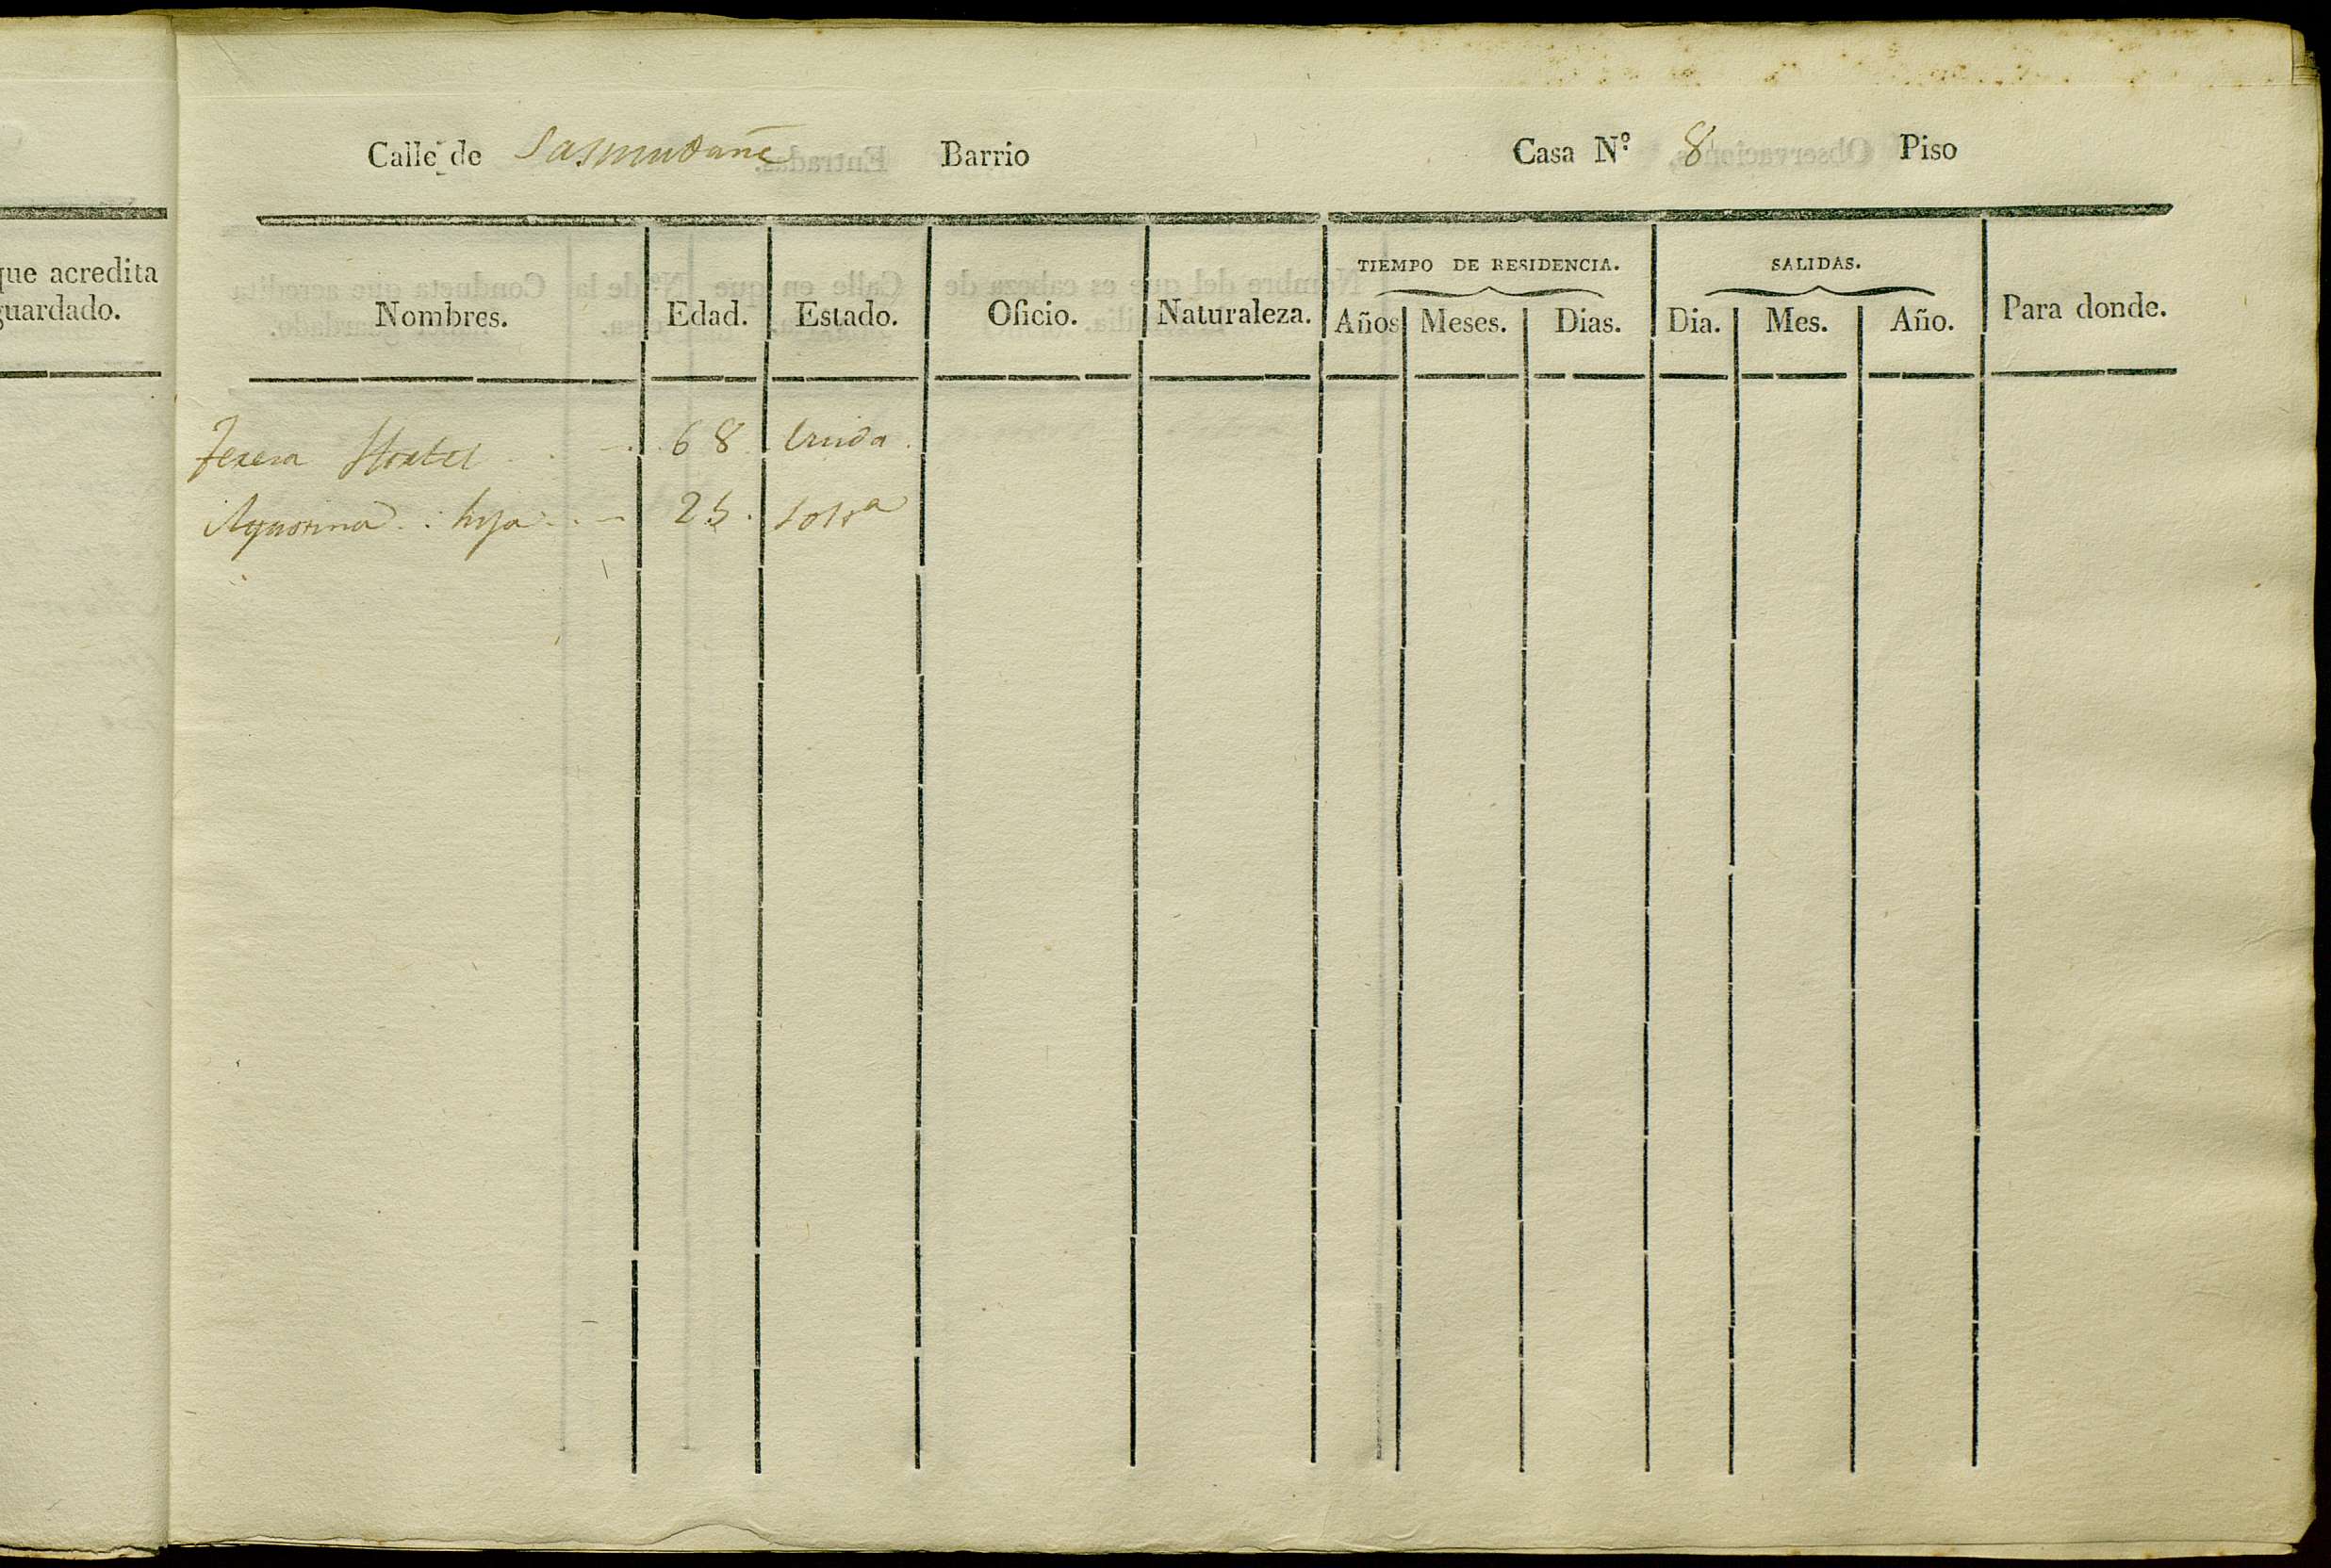 que acredita
guardado.
Calle de Sasmudañe Barrio Casa N.º 8 Piso
TIEMPO DE RESIDENCIA. SALIDAS.
Nombres. Edad. Estado. Oficio. Naturaleza. Años Meses. Dias. Dia. Mes. Año. Para donde.
Teresa 68. Viuda.
Agustina : hija 25. Solt.ª